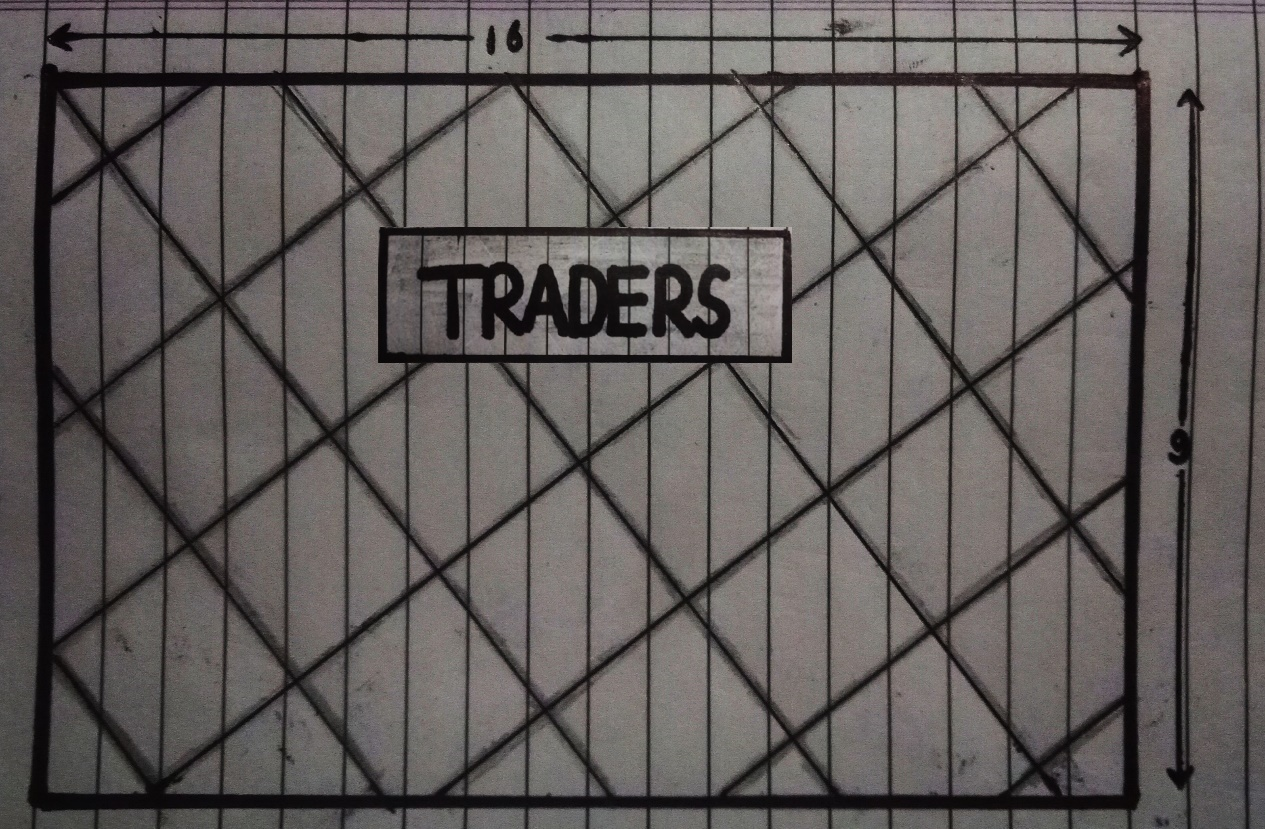 16
TRADERS
9